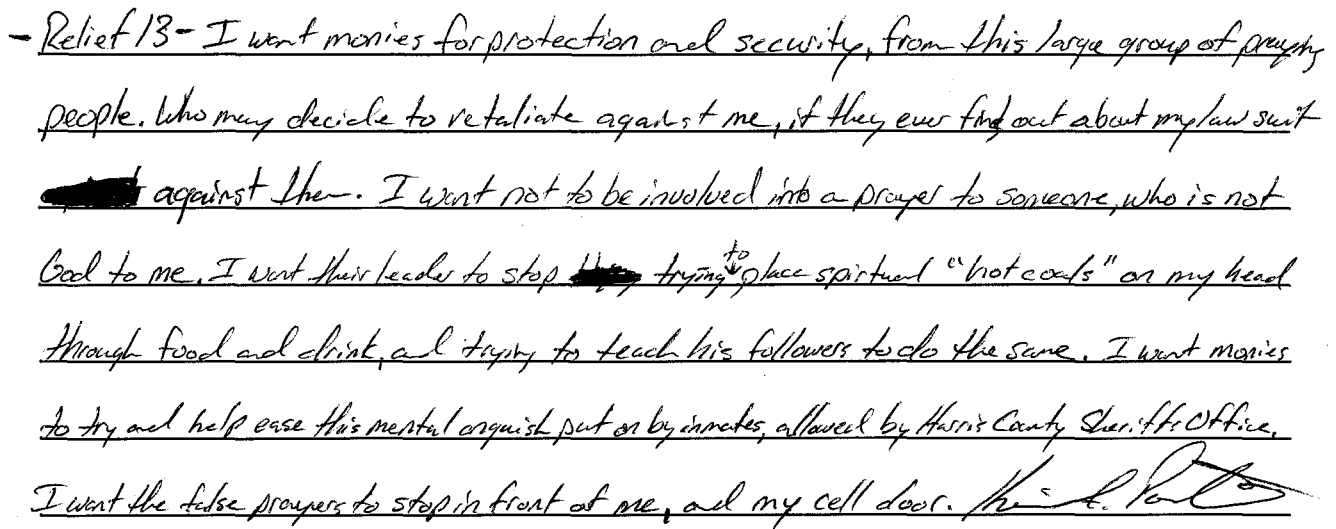 - Relief 13 - I want monies for protection and security, from this large group of praying
people. Who may decide to retaliate against me, if they ever find out about my law suit
against them. I want not to be involved into a prayer to someone, who is not
God to me. I want their leader to stop trying to place spirtual "hot coals" on my head
through food and drink, and trying to teach his followers to do the same. I want monies
to try and help ease this mental anguish put on by inmates, allowed by Harris County Sheriffs Office.
I want the false prayers to stop in front of me, and my cell door.